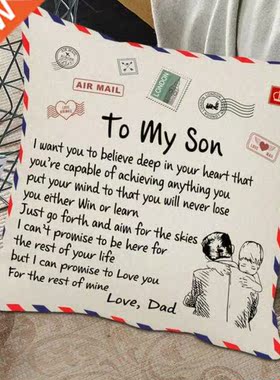 AIR MAIL
LONDON
To My Son
I want you to believe deep in your heart that
you're capable of achieving anything you
put your mind to that you will never lose
you either Win or learn
Just go forth and aim for the skies
I can't promise to be here for
the rest of your life
but I can promise to Love you
For the rest of mine
Love, Dad